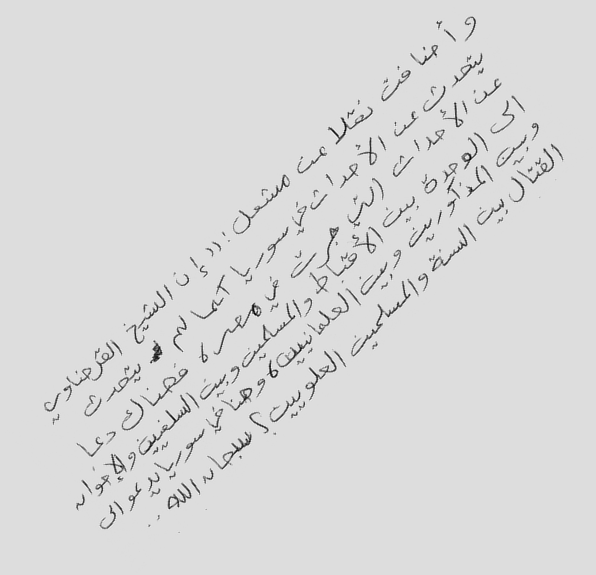 وأضافت نقلا عن مشعل: ((إن الشيخ القرضاوي
يتحدث عن الأحداث في سوريا كما لم يتحدث
عن الأحداث التي جرت في مصر، فهناك دعا
الى الوحدة بين الأقباط والمسلمين وبين السلفيين والإخوان
وبين المذكورين وبين العلمانيين، وهنا في سوريا يدعو الى
القتال بين السنة والمسلمين العلويين؟ سبحان الله..